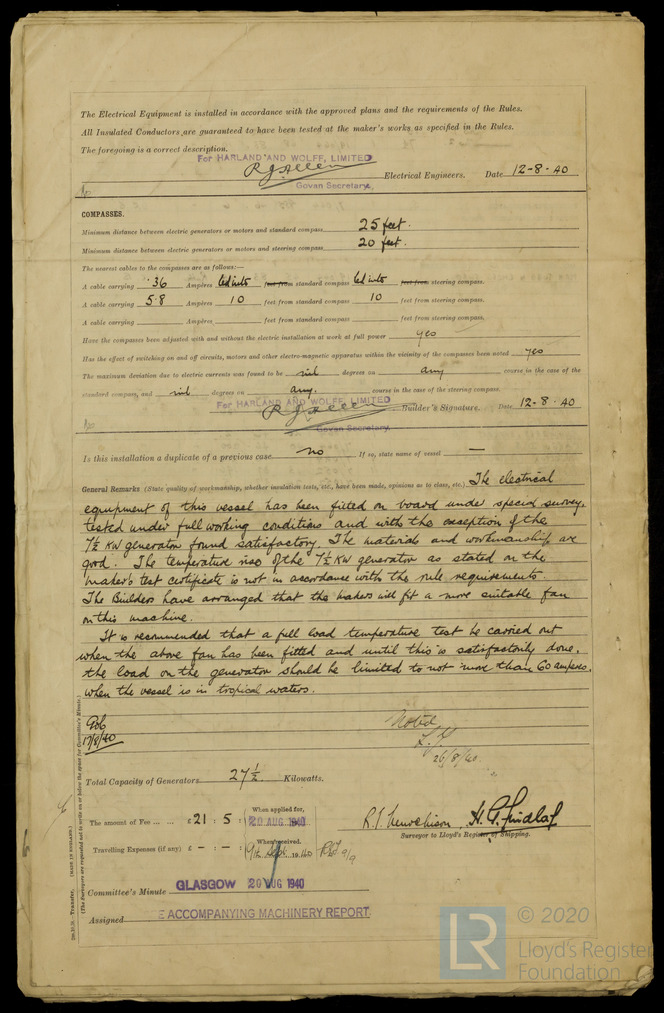 The Electrical Equipment is installed in accordance with the approved plans and the requirements of the Rules.
All Insulated Conductors are guaranteed to have been tested at the maker's works as specified in the Rules.
The foregoing is a correct description.
For HARLAND AND WOLFF, LIMITED
R J Allen Electrical Engineers. Date 12-8-40
Govan Secretary.
COMPASSES.
Minimum distance between electric generators or motors and standard compass 25 feet.
Minimum distance between electric generators or motors and steering compass 20 feet.
The nearest cables to the compasses are as follows:—
A cable carrying .36 Ampères led into feet from standard compass led into feet from steering compass.
A cable carrying 5.8 Ampères 10 feet from standard compass 10 feet from steering compass.
A cable carrying Ampères feet from standard compass feet from steering compass.
Have the compasses been adjusted with and without the electric installation at work at full power yes
Has the effect of switching on and off circuits, motors and other electro-magnetic apparatus within the vicinity of the compasses been noted yes
The maximum deviation due to electric currents was found to be nil degrees on any course in the case of the
standard compass, and nil degrees on any. course in the case of the steering compass.
For HARLAND AND WOLFF, LIMITED
R J Allen Builder's Signature. Date 12-8-40
Govan Secretary.
Is this installation a duplicate of a previous case no If so, state name of vessel —
General Remarks (State quality of workmanship, whether insulation tests, etc., have been made, opinions as to class, etc.) The electrical
equipment of this vessel has been fitted on board under special survey,
tested under full working conditions and with the exception of the
7½ KW generator found satisfactory. The materials and workmanship are
good. The temperature rise of the 7½ KW generator as stated on the
maker's test certificate is not in accordance with the rule requirements.
The Builders have arranged that the makers will fit a more suitable fan
on this machine.
It is recommended that a full load temperature test be carried out
when the above fan has been fitted and until this is satisfactorily done,
the load on the generator should be limited to not more than 60 amperes.
when the vessel is in tropical waters.
17/8/40
Noted
26/8/40.
Total Capacity of Generators 27½ Kilowatts.
The amount of Fee ... ... £21 : 5 :
When applied for,
20 AUG 1940
H. G. Findlay
Surveyor to Lloyd's Register of Shipping.
Travelling Expenses (if any) £ - : - :
When received.
9th Sept 1940
9/9
Committee's Minute GLASGOW 20 AUG 1940
Assigned E ACCOMPANYING MACHINERY REPORT
2m.10.38.—Transfer. (MADE IN ENGLAND.)
(The Surveyors are requested not to write on or below the space for Committee's Minute.)
LR
© 2020
Lloyd's Register
Foundation